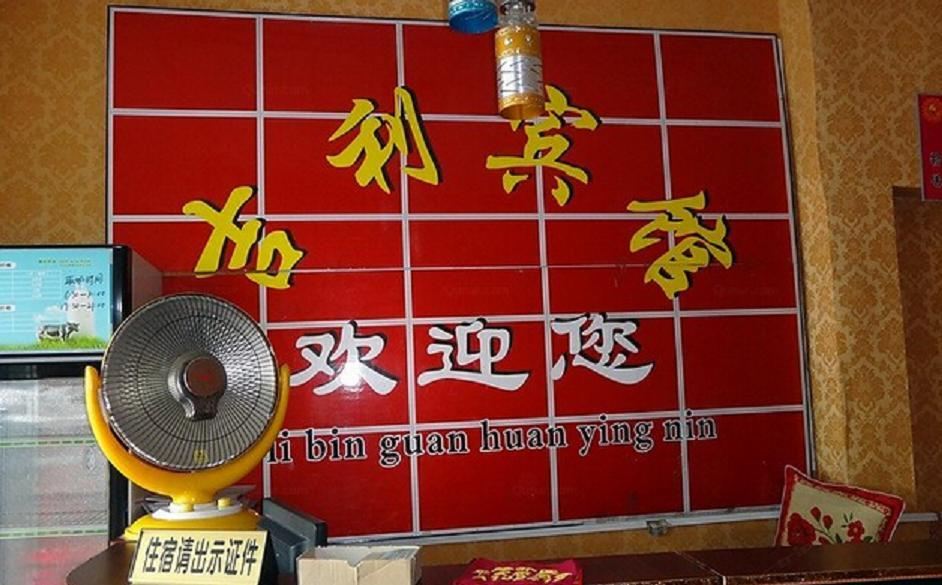 吉利宾馆
欢迎您
li bin guan huan ying nin
住宿请出示证件